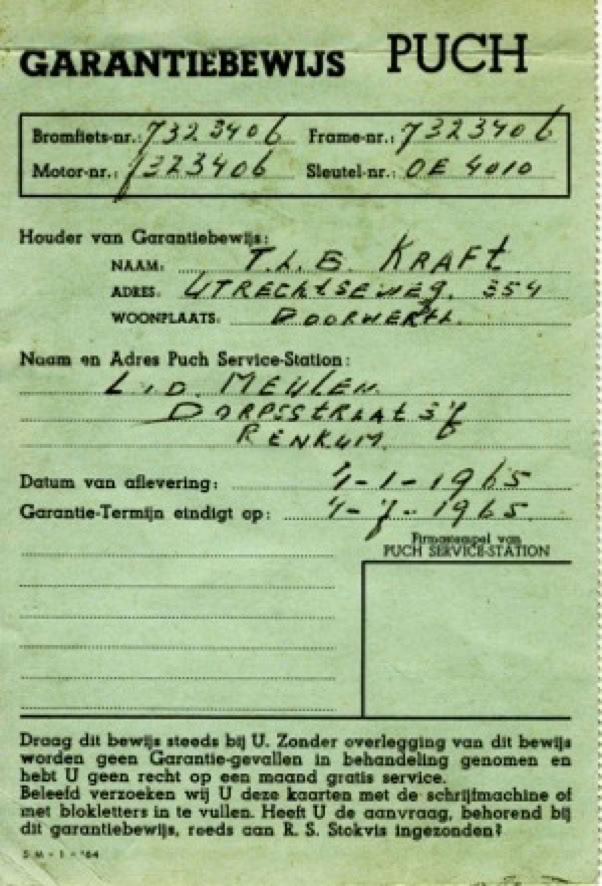 GARANTIEBEWIJS PUCH
Bromfiets-nr.: 7323406 Frame-nr.: 7323406
Motor-nr.: 7323406 Sleutel-nr.: OE 4010
Houder van Garantiebewijs:
NAAM: T.L.B. KRAFt
ADRES: UTRECHtSEWEg. 354
WOONPLAATS: DOORWERth.
Naam en Adres Puch Service-Station:
L.v.D. MEULEN
DORPSSTRAAt
RENKUM.
Datum van aflevering: 1-1-1965
Garantie-Termijn eindigt op: 1-7-1965.
Firmastempel van
PUCH SERVICE-STATION
Draag dit bewijs steeds bij U. Zonder overlegging van dit bewijs
worden geen Garantie-gevallen in behandeling genomen en
hebt U geen recht op een maand gratis service.
Beleefd verzoeken wij U deze kaarten met de schrijfmachine of
met blokletters in te vullen. Heeft U de aanvraag, behorend bij
dit garantiebewijs, reeds aan R. S. Stokvis ingezonden?
S M - 1 - '64